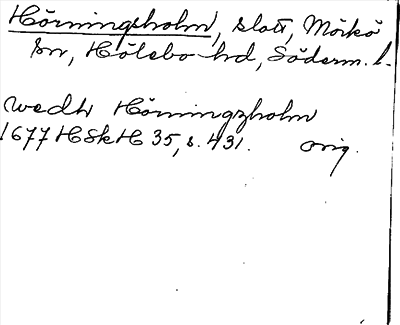 Hörningsholm, slott, Mörkö
sn, Hölebo hd, Söderm. l.
wedh Hörningzholm
1677 HSkH 35, s. 431. orig.